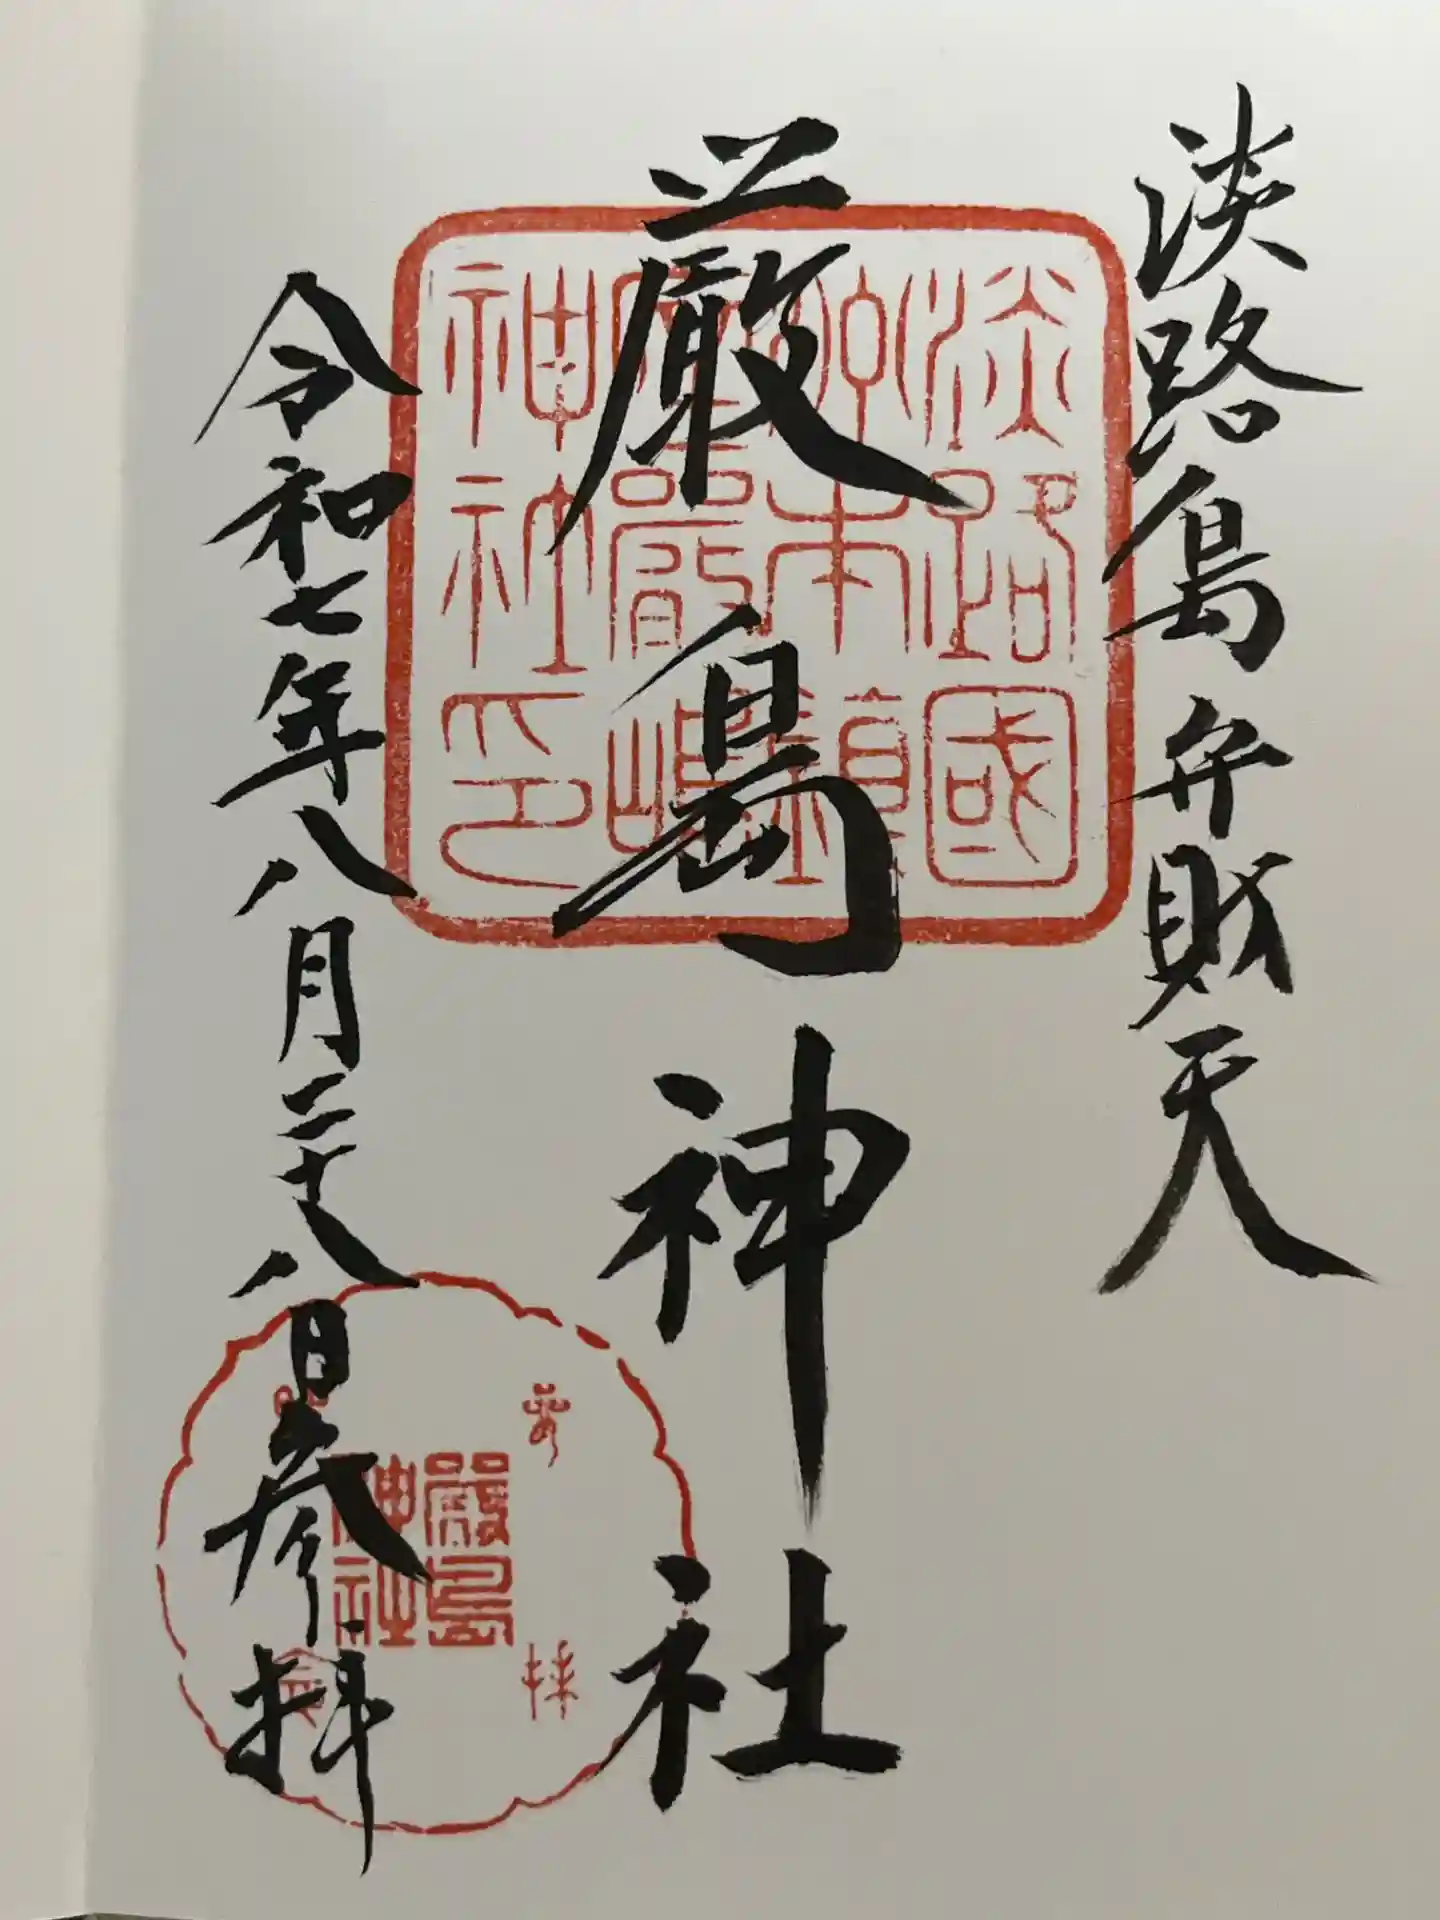 淡路島弁財天
厳島神社
令和七年八月二十八日参拝
淡路國
州本鎮
座嚴嶋
神社印
嚴島
神社
参拝